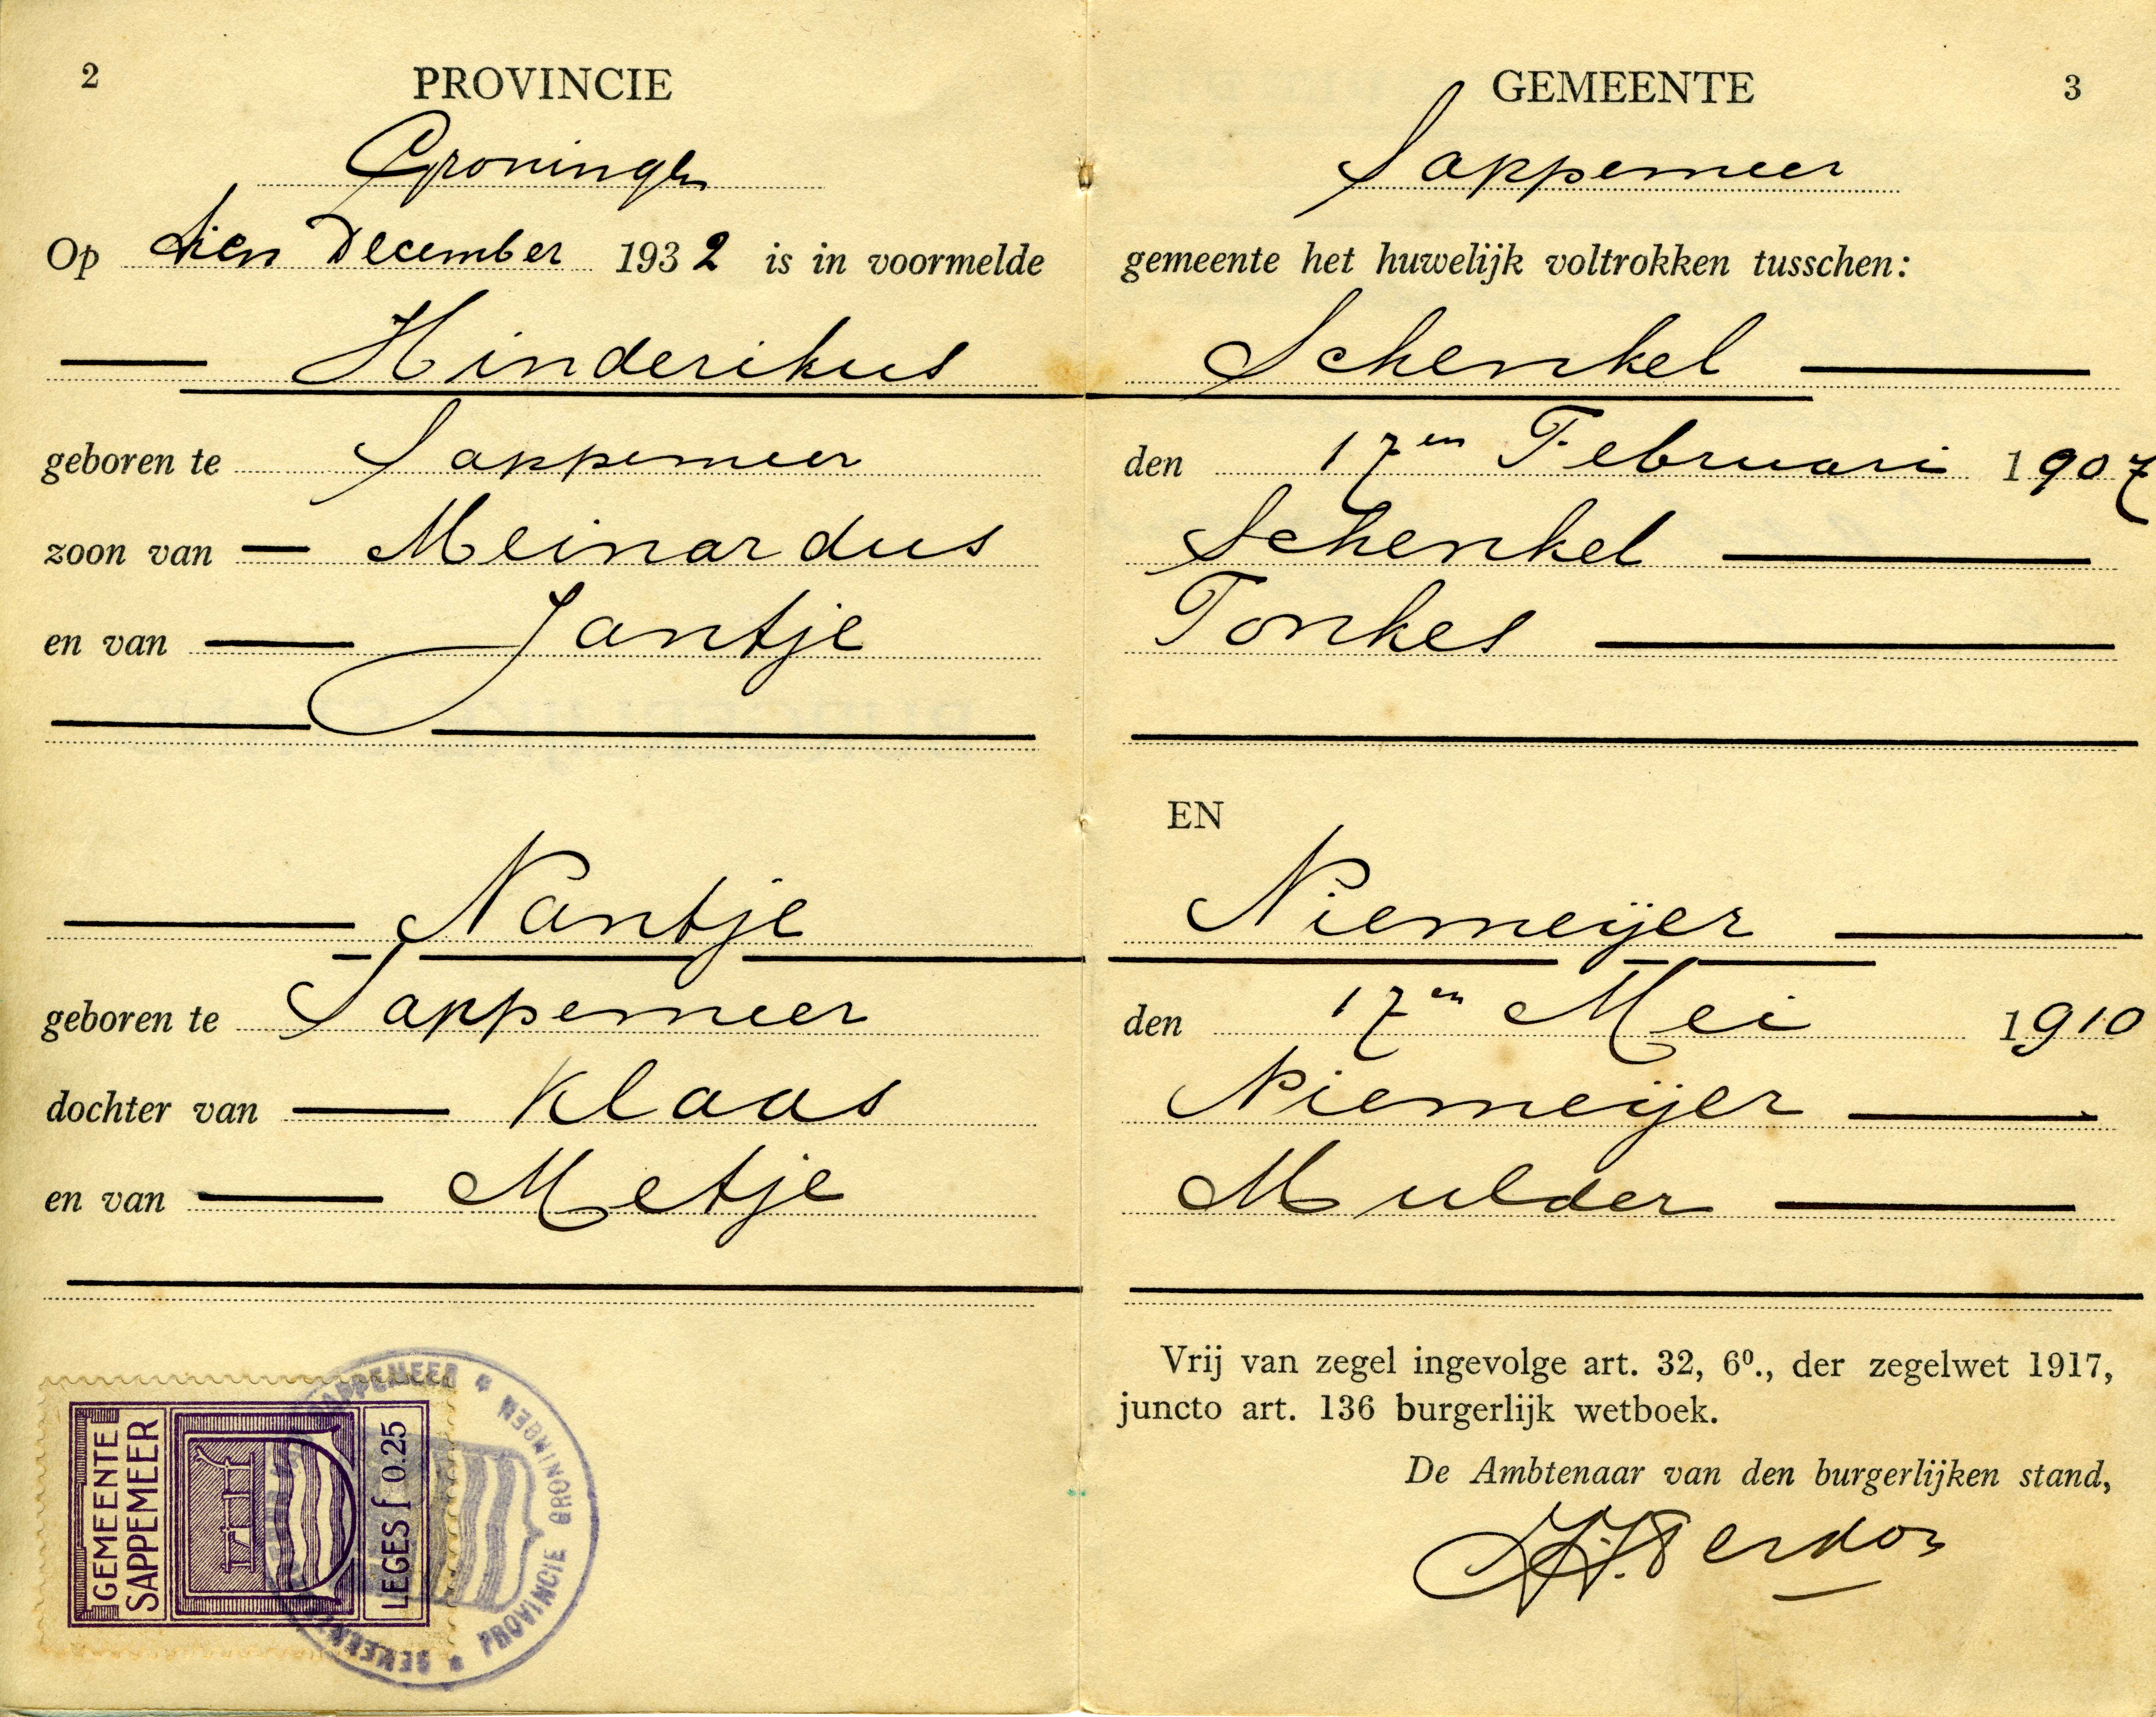 2 PROVINCIE
Groningen
Op tien December 1932 is in voormelde
Hinderikus
geboren te Sappemeer
zoon van Meinardus
en van Jantje
Nantje
geboren te Sappemeer
dochter van Klaas
en van Metje
GEMEENTE SAPPEMEER LEGES f 0.25
GEMEENTE SAPPEMEER * PROVINCIE GRONINGEN *
GEMEENTE 3
Sappemeer
gemeente het huwelijk voltrokken tusschen:
Schenkel
den 17en Februari 1907
Schenkel
Tonkes
EN
Niemeijer
den 17en Mei 1910
Niemeijer
Mulder
Vrij van zegel ingevolge art. 32, 6º., der zegelwet 1917,
juncto art. 136 burgerlijk wetboek.
De Ambtenaar van den burgerlijken stand,